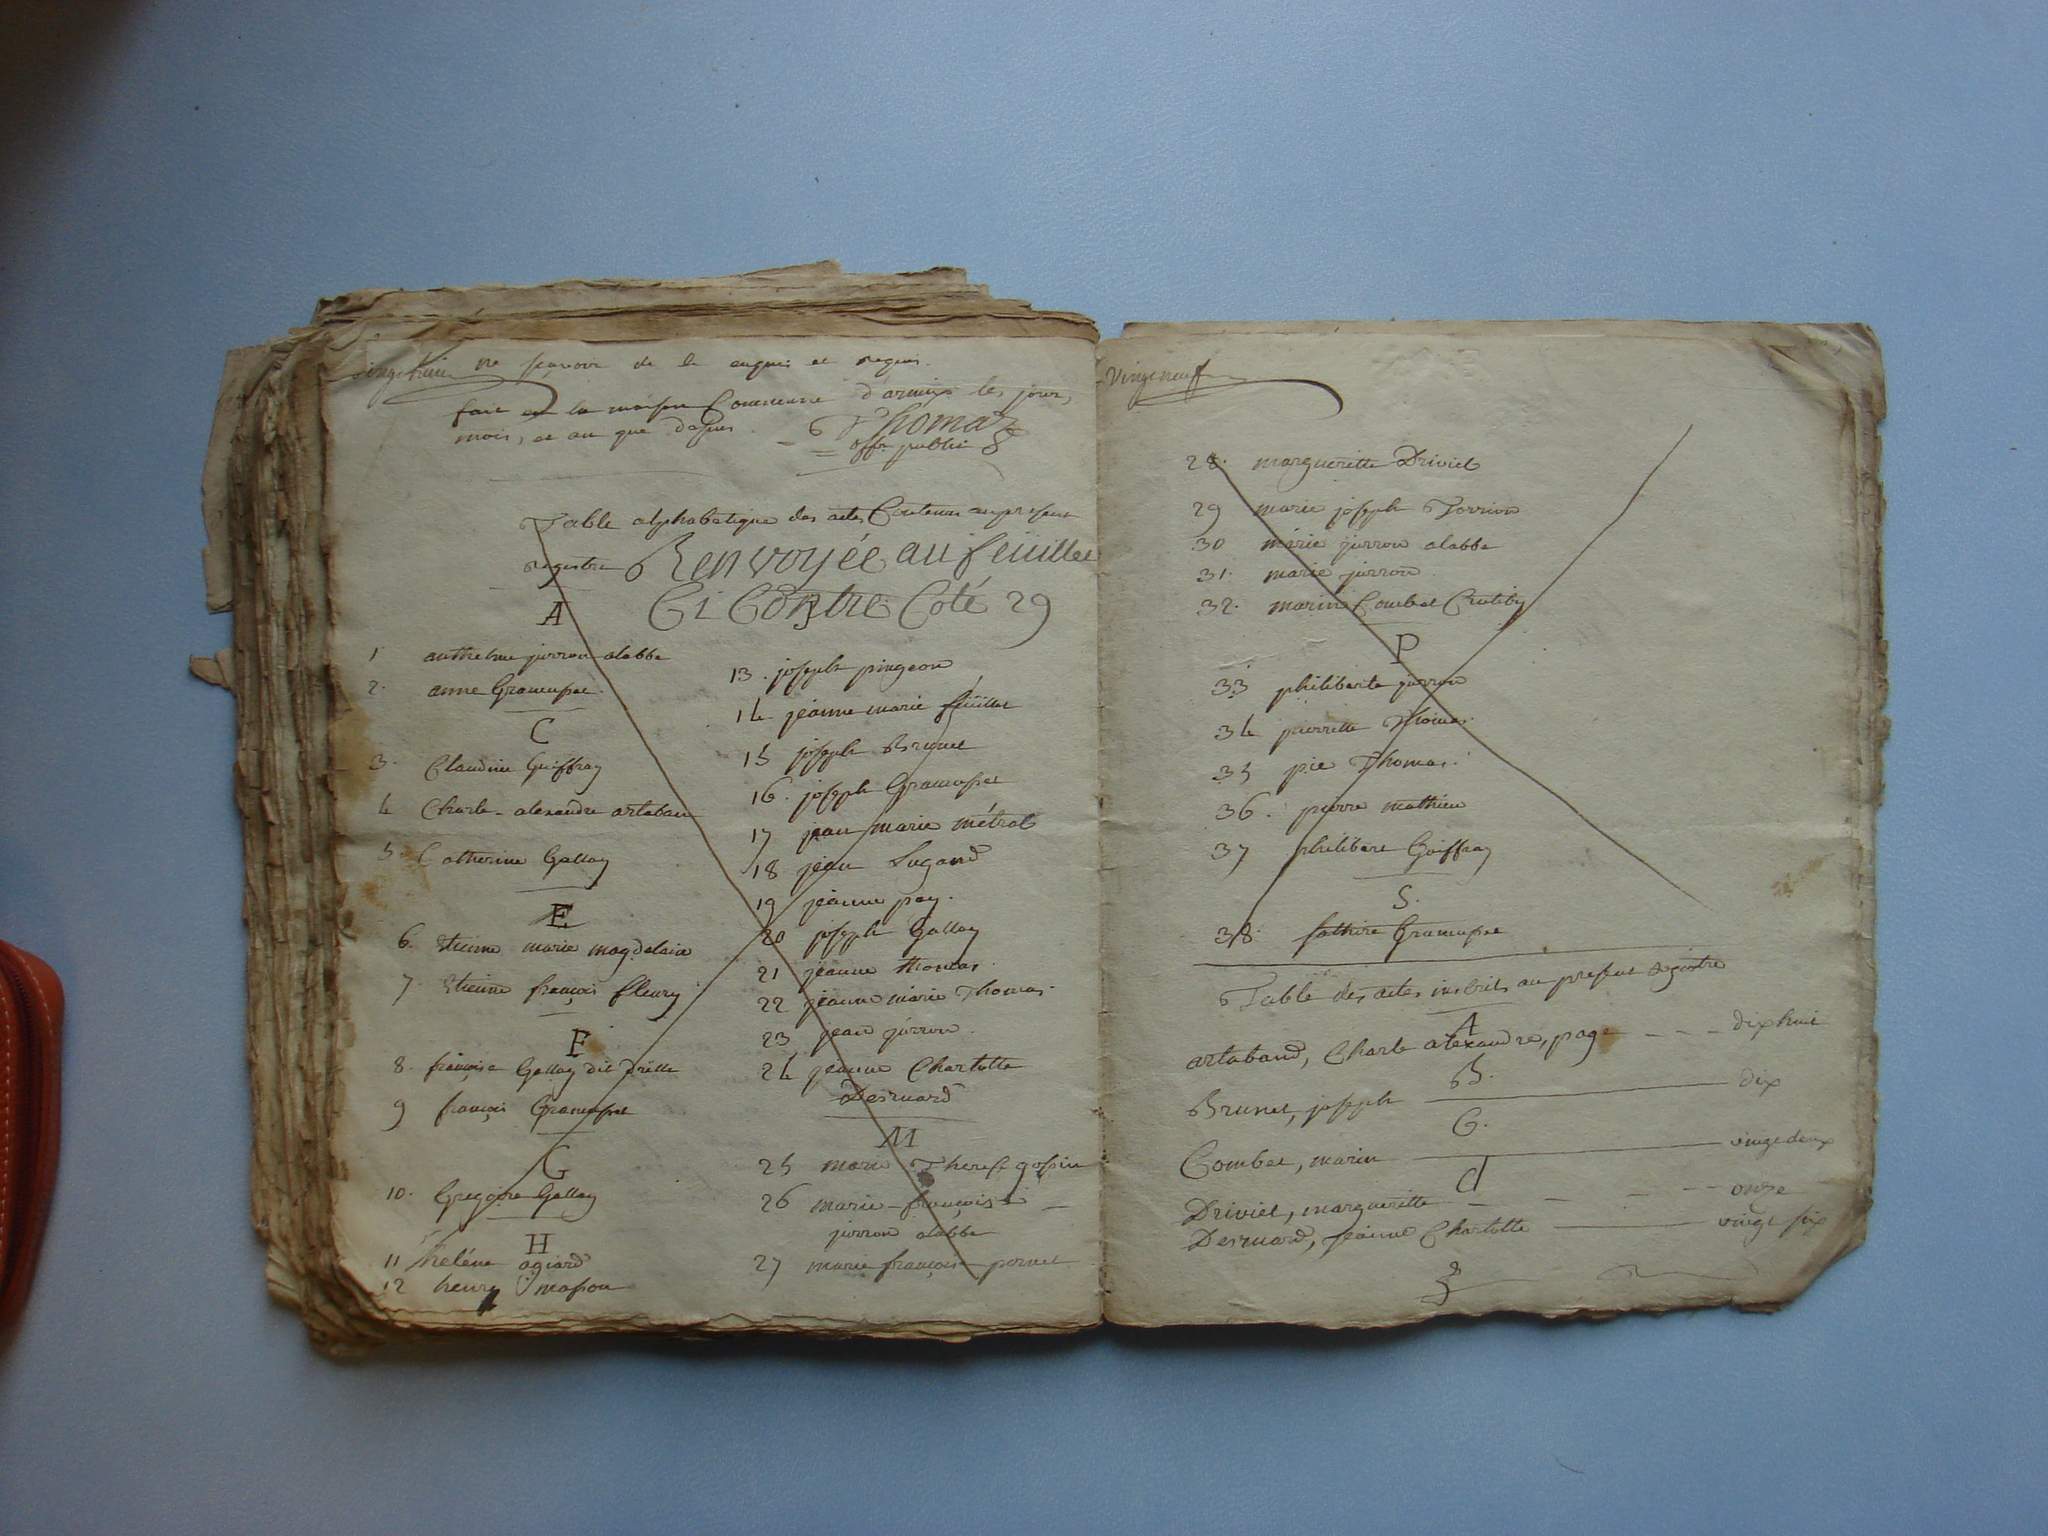 vingt huit
ne sçavoir de le enquis et requis.
fait en la maison Commune d'armix les jour,
mois, et an que dessus. Thomas
offr. public
Table alphabetique des actes Contenus au present
registre Renvoyée au feuillet
Ci Contre Coté 29
A
1 anthelme jurron alabbe
2. anne Gramusset.
C
3. Claudine Guiffray
4 Charle-alexandre artaban
5 Catherine Gallay
E
6. etienne marie magdelaine
7. etienne françois fleury
F
8. françoise Gallay dit drille
9 françois Gramusset
G
10. Gregoire Gallay
H
11 heléne agiard
12 henry masson
J
13. joseph pingeon
14 jeanne marie feüillet
15 joseph Brunet
16. joseph Gramusset
17 jean marie métral
18 jean Lugand
19 jeanne pay.
20 joseph Gallay
21 jeanne thomas.
22 jeanne marie Thomas.
23 jean jurron.
24 jeanne Charlotte
Desruard
M
25 marie Therese gossin
26 marie-françoise
jurron alabbe
27 marie françoise pornet
vingt neuf
28. marguerite Driviet
29 marie joseph
30 marie jurron alabbe
31. marie jurron.
32. marin Combet
P
33 philiberte jurron
34 pierrette Thomas.
35 pie Thomas.
36. pierre mathieu
37 philibert Guiffray
S.
38. Gramusset
Table des actes inscrits au present registre
A
artaband, Charle alexandre, page - - - dixhuit
B.
Brunet, joseph dix
C.
Combet, marin vingt deux
d
Driviet, margueritte - - - - onze
Desruard, jeanne Charlotte vingt six